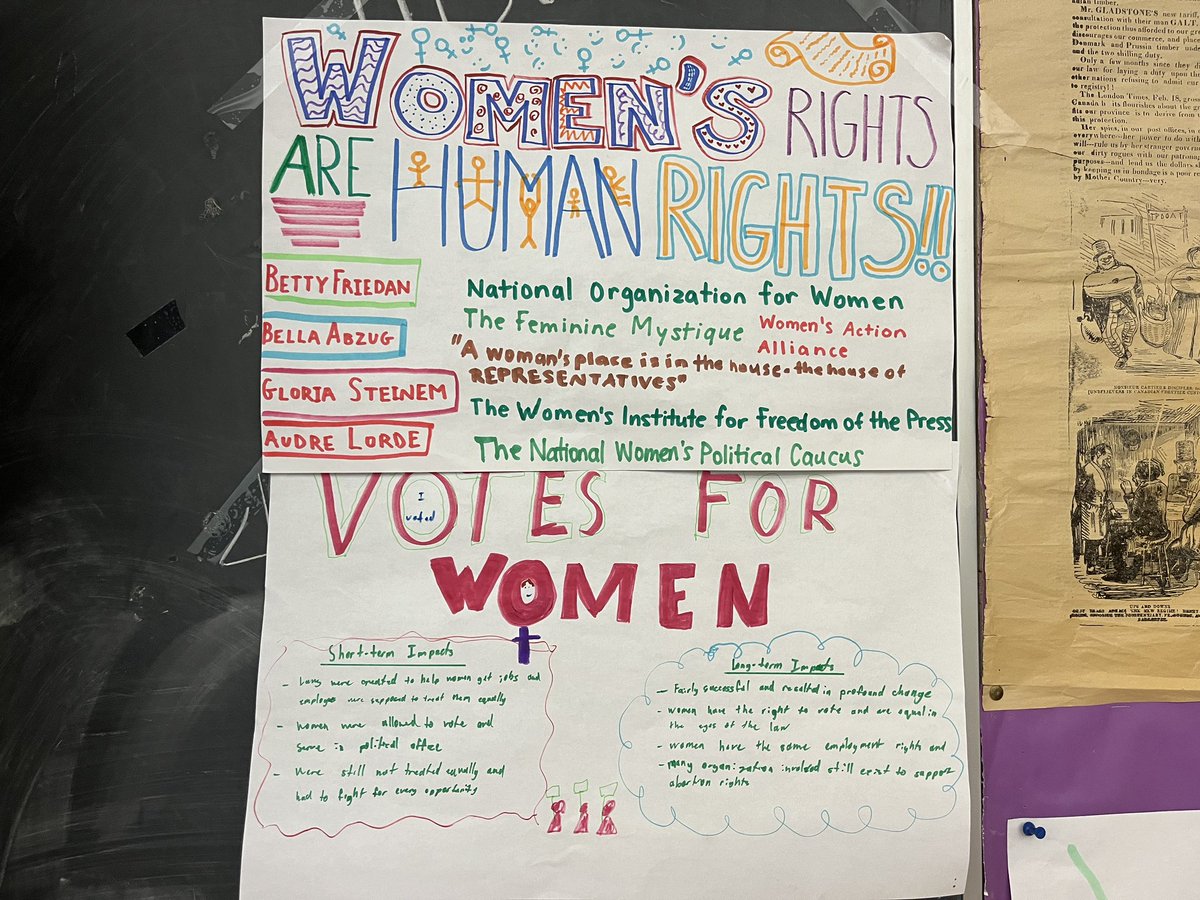 WOMEN'S RIGHTS
ARE HUMAN RIGHTS!!
BETTY FRIEDAN
BELLA ABZUG
GLORIA STEINEM
AUDRE LORDE
National Organization for Women
The Feminine Mystique
Women's Action
Alliance
"A woman's place is in the house-the house of
REPRESENTATIVES"
The Women's Institute for Freedom of the Press
The National Women's Political Caucus
VOTES FOR
I
voted
WOMEN
Short-term Impacts
- Laws were created to help women get jobs and
employers were supposed to treat them equally
- Women were allowed to vote and
serve in political office
- Were still not treated equally and
had to fight for every opportunity
Long-term Impacts
- Fairly successful and resulted in profound change
- women have the right to vote and are equal in
the eyes of the law
- women have the same employment rights and
- many organization involved still exist to support
abortion rights
Mr. GLADSTONE'S new tariff
consultation with their man GALT.
the protection thus afforded to our
discourages our commerce, and place
Denmark and Prussia timber
and the two shilling duty.
Only a few months since they
our law for laying a duty upon
other nations refusing to admit
to registry!!
The London Times, Feb. 18,
Canada its flourishes about the
fit our province is to derive from
this protection.
Her spies, in our post offices, in
everywhere—her power to do with
will—rule us by her stranger
our dirty rogues with our
purposes—and lend us the dollars
by keeping us in bondage is a poor
by Mother Country—very.
UPS AND DOWNS